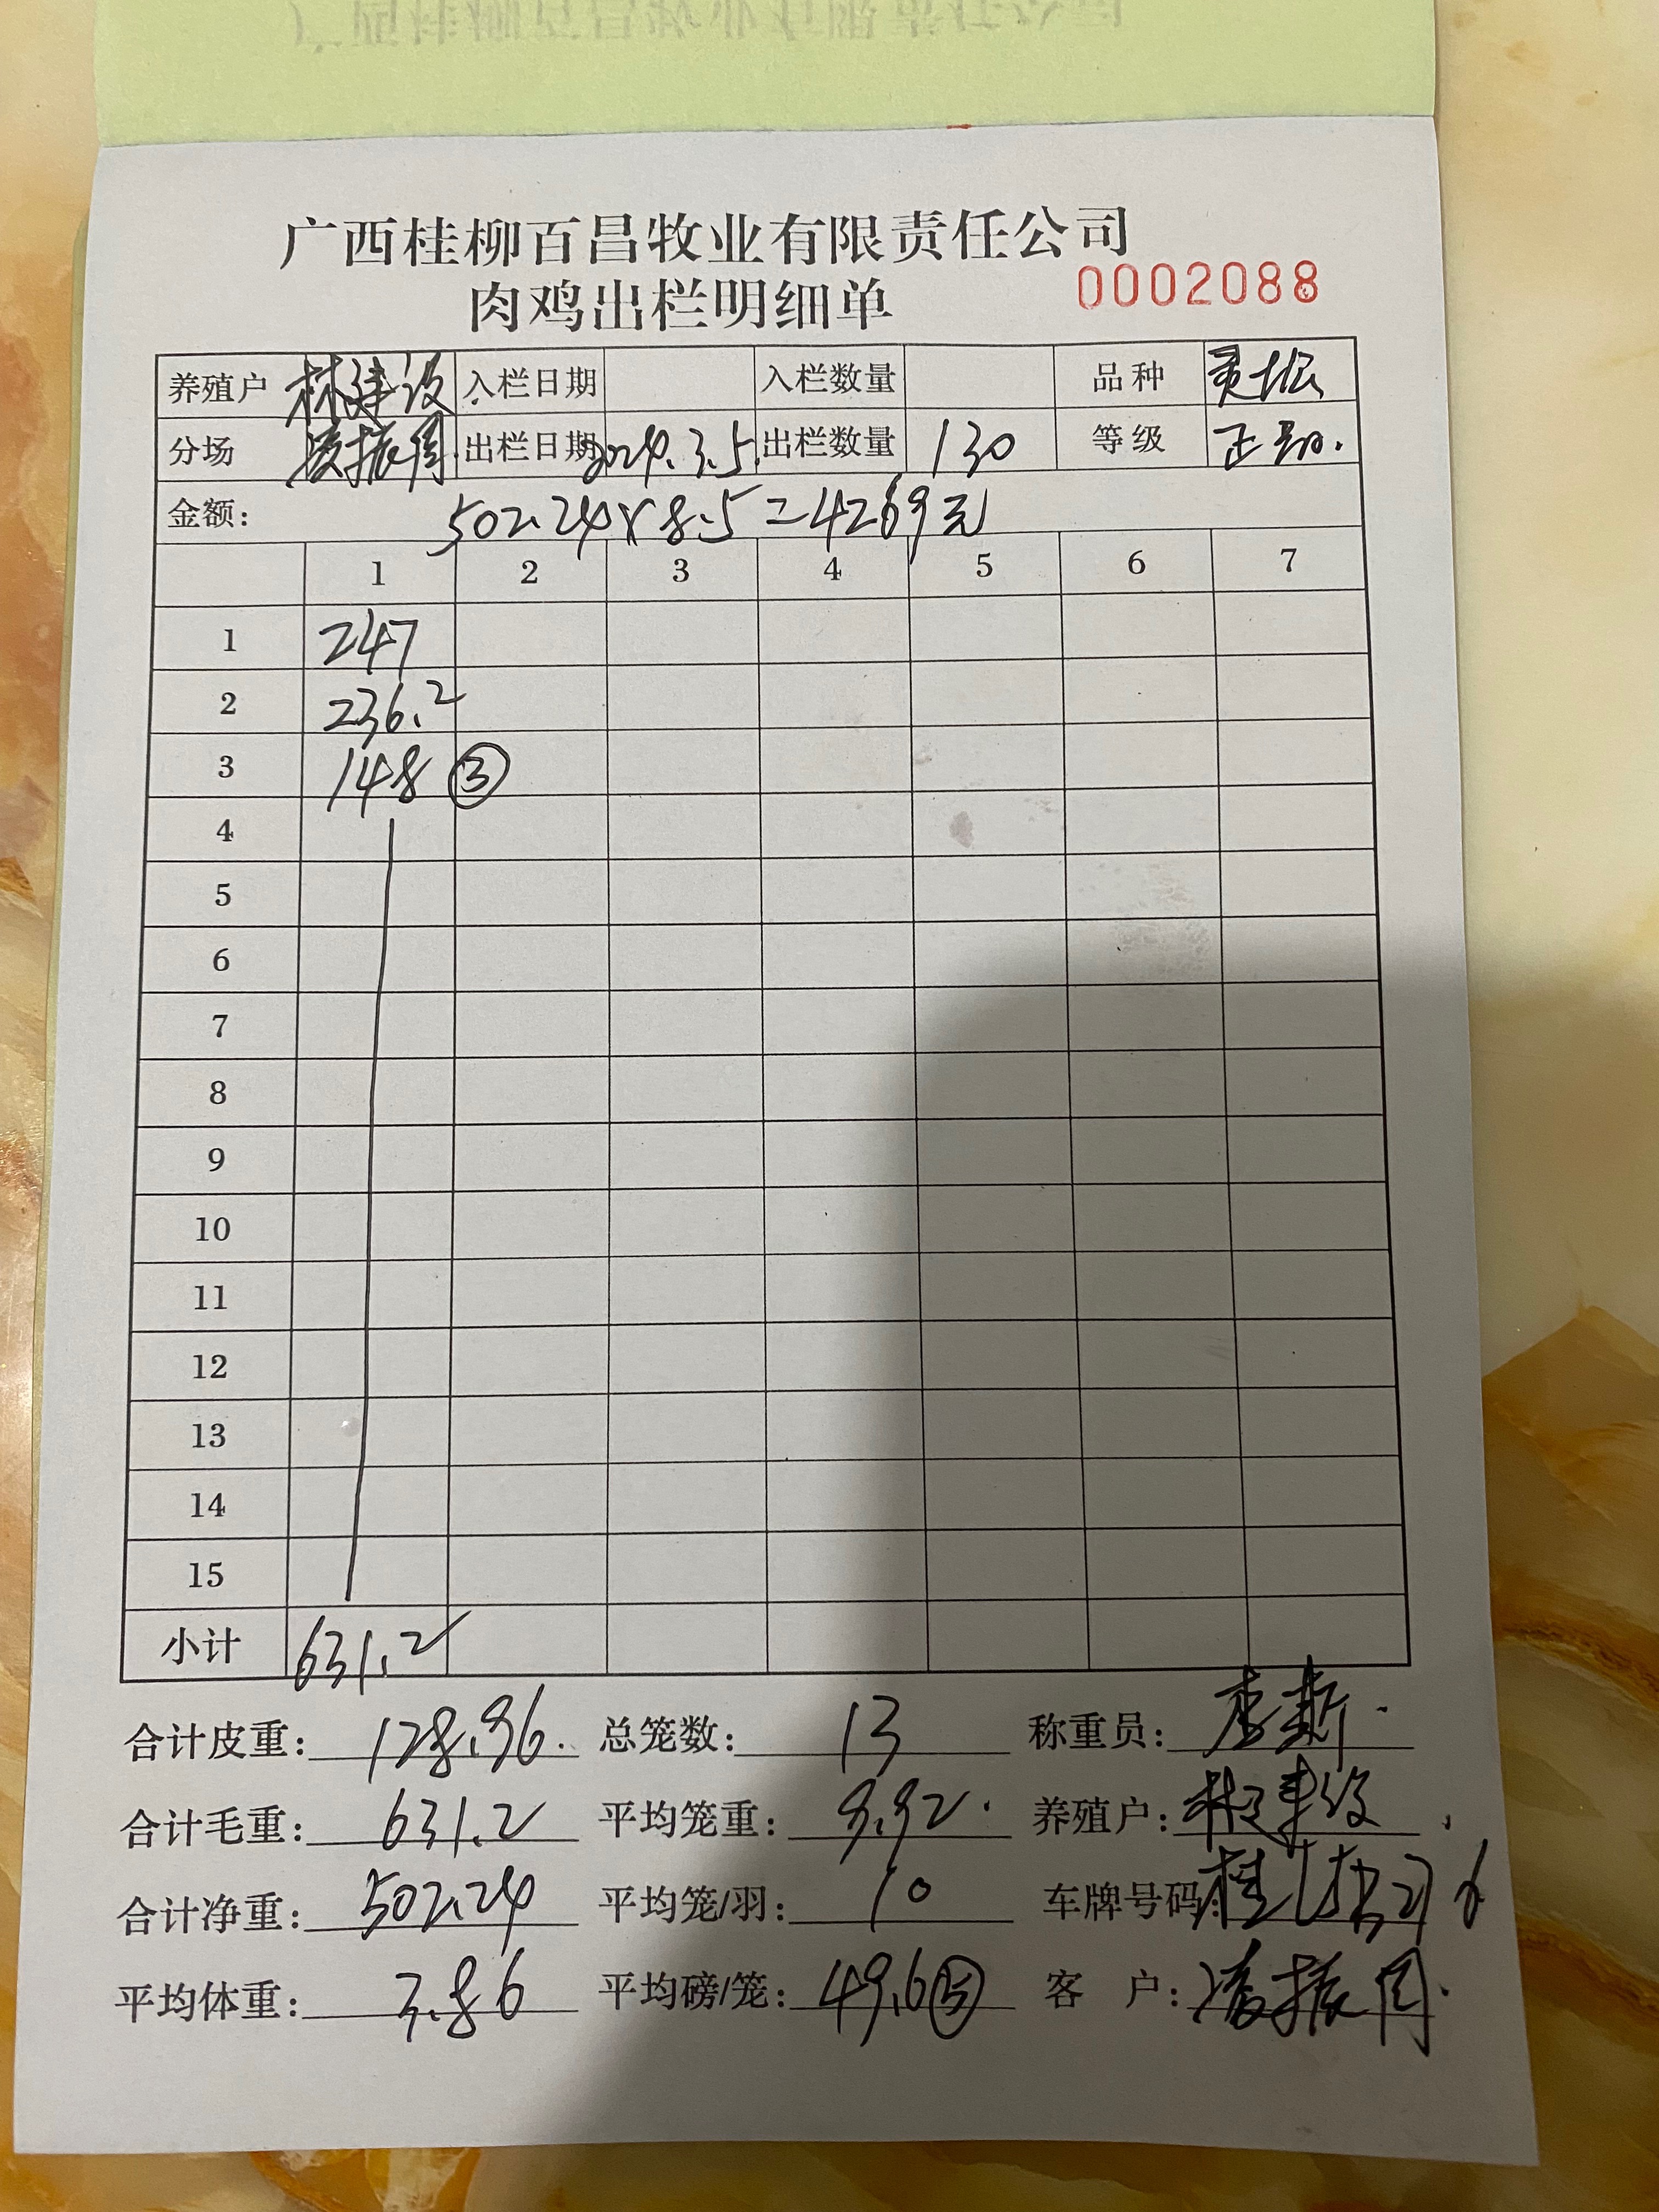 广西桂柳百昌牧业有限责任公司
肉鸡出栏明细单 0002088
养殖户 林建设 入栏日期 入栏数量 品种
分场 凌振周 出栏日期 2024.3.5. 出栏数量 130 等级 正品.
金额: 502.24×8.5=4269元
1 2 3 4 5 6 7
1 247
2 236.2
3 148 ③
4
5
6
7
8
9
10
11
12
13
14
15
小计 631.2
合计皮重: 128.96. 总笼数: 13 称重员: 李
合计毛重: 631.2 平均笼重: 9.92. 养殖户: 林建设
合计净重: 502.24 平均笼/羽: 10 车牌号码: 桂
平均体重: 3.86 平均磅/笼: 49.6⑤ 客 户: 凌振周.